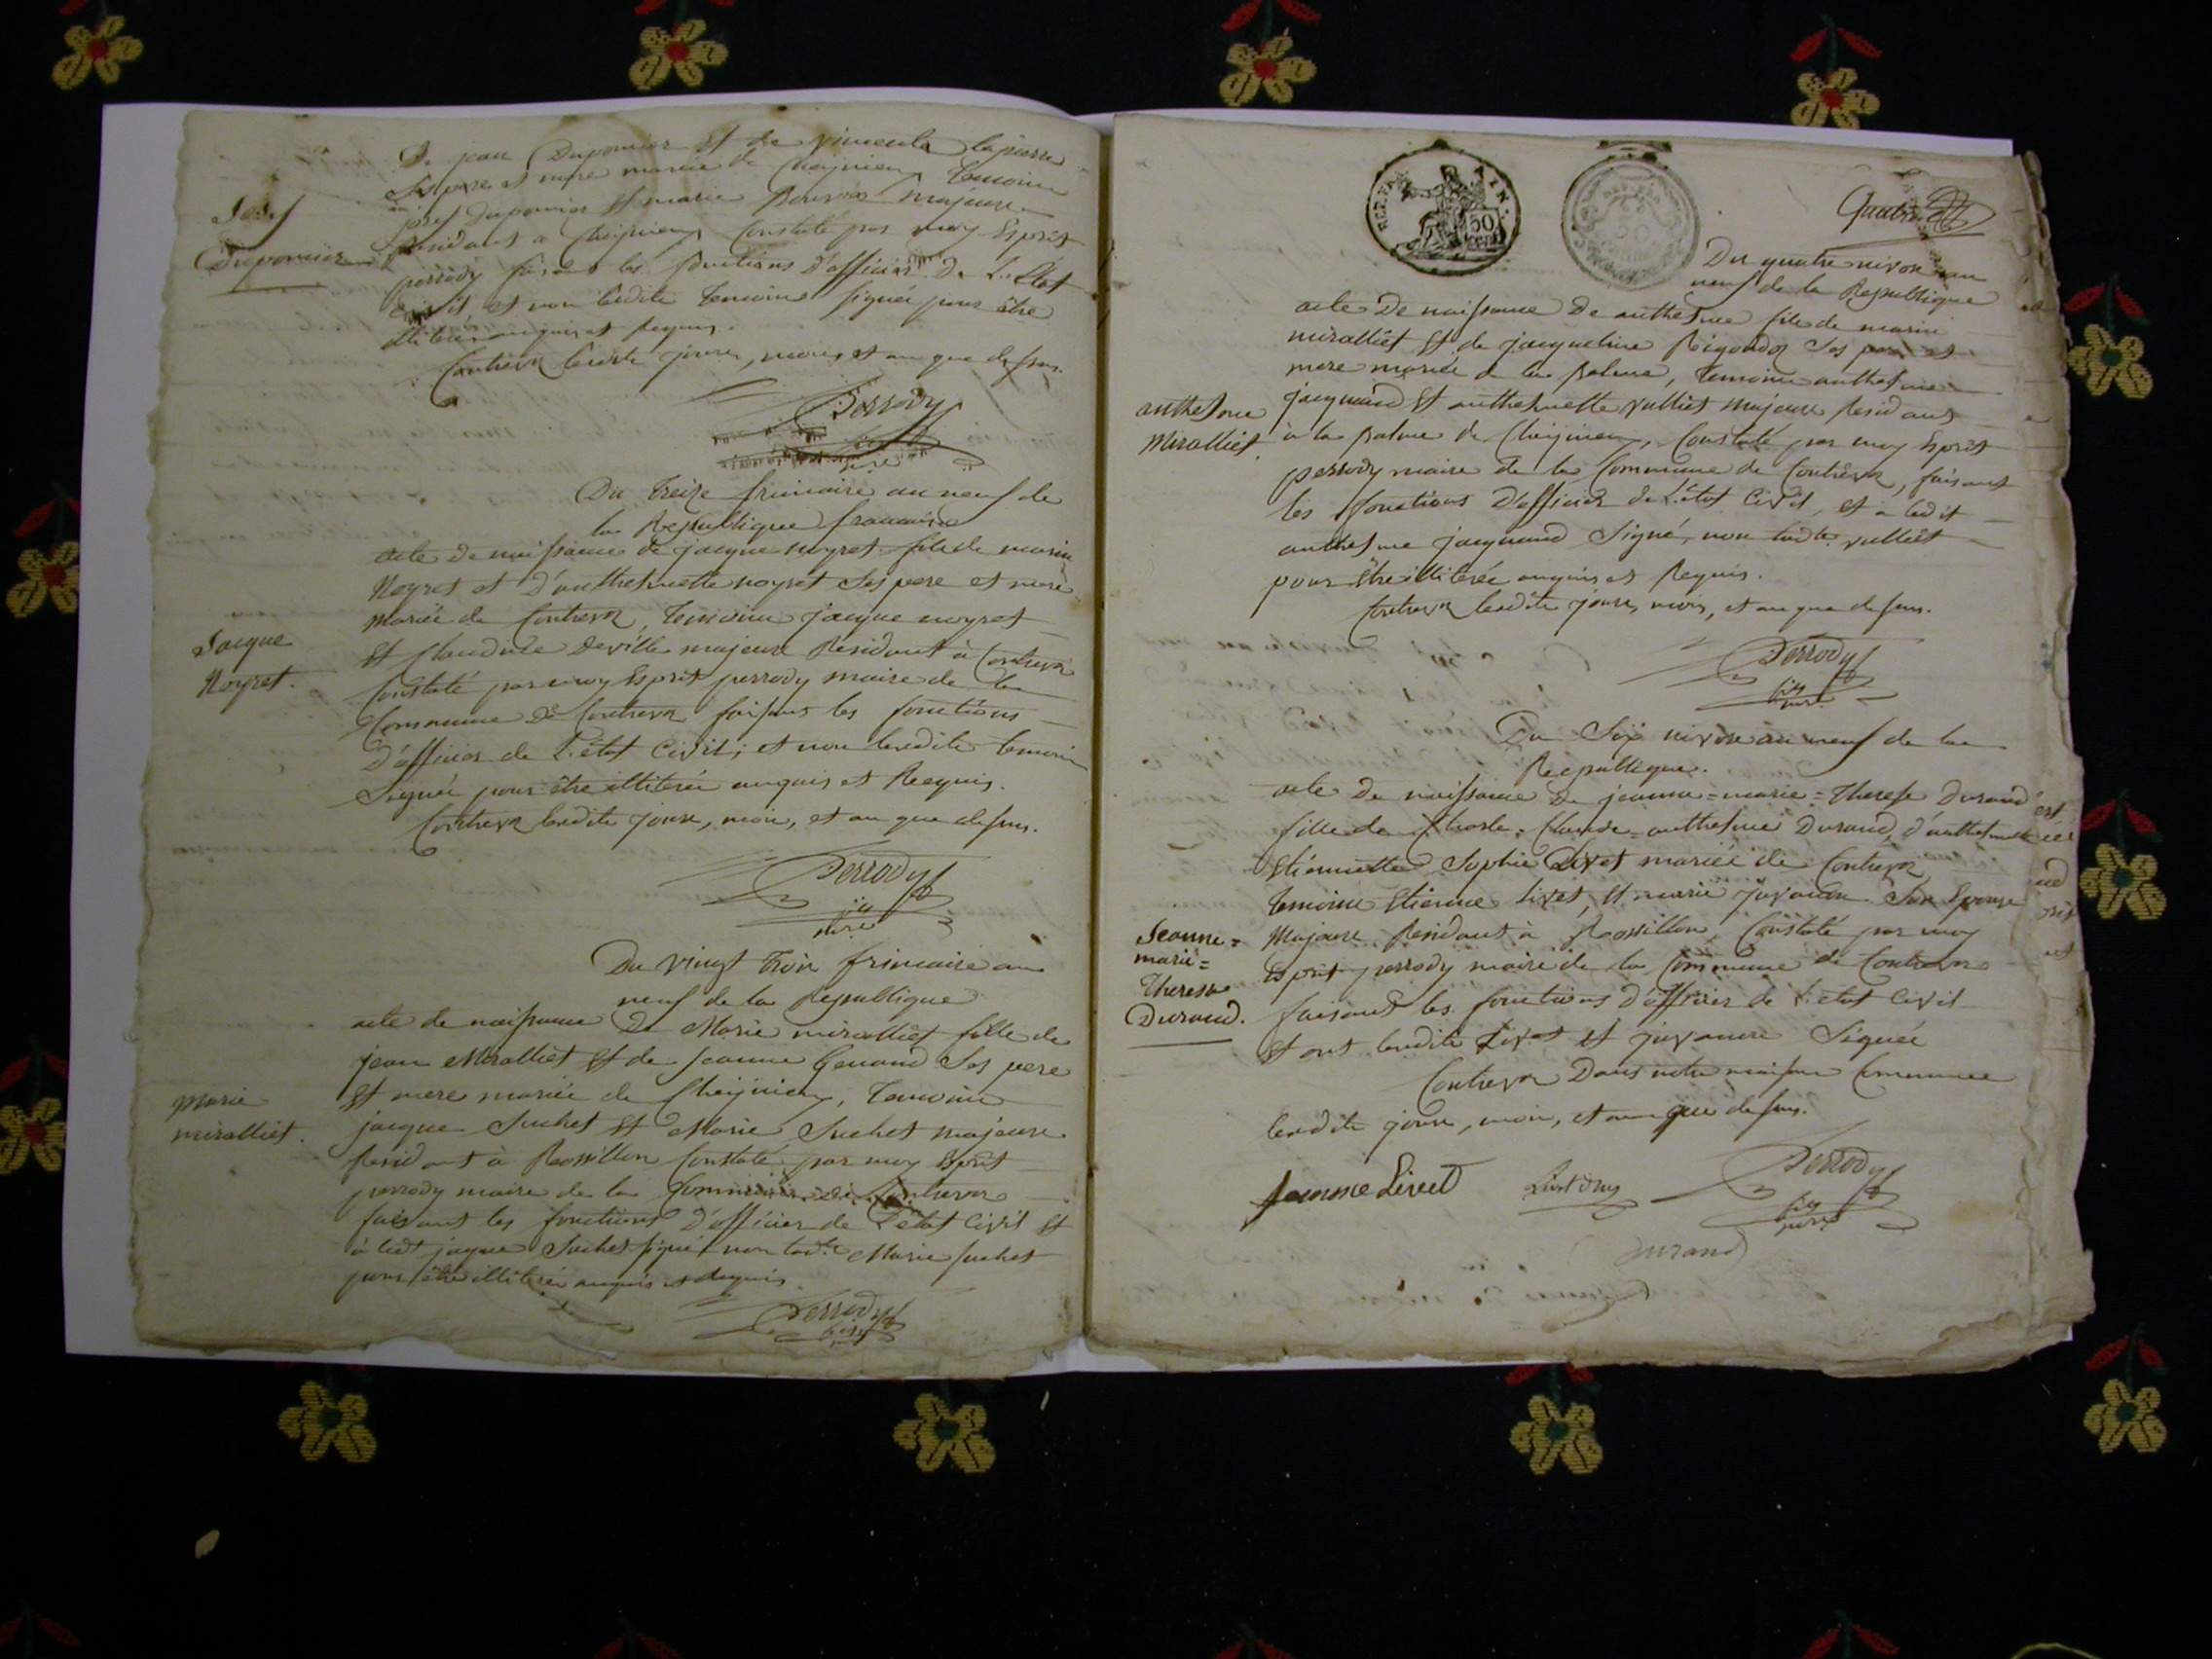 De jean Dupornier et de
Ses pere et mere mariés de Cheignieu, temoins
josef Duponier et marie majeure
Josef
Duponier
Residants a Cheignieu, Constaté par moy Esprit
perrody faisant les fonctions d'officier De L'Etat
Civil, et non lesdits temoins signés pour être
illiterés enquis et Requis.
Contrevoz lesdits jours, mois et an que dessus.
Perrody
Du treize frimaire an neuf de
la Republique francaise
acte de naissance de jacque noyret fils de marin
Noyret et d'anthelmette noyret Ses pere et mere
Mariés de Contrevoz, temoins jacque noyret
Jacque
Noyret.
et Claudine Deville majeurs Residant à Contrevoz
Constaté par moy Esprit perrody maire de la
Commune De Contrevoz faisant les fonctions
D'officier de L'état Civil; et non lesdits temoins
Signés pour être illiterés enquis et Requis.
Contrevoz lesdits jours, mois, et an que dessus.
Perrody
Du vingt trois frimaire an
neuf de la Republique
acte de naissance De Marie miralliet fille de
jean Miralliet et de jeanne Genand Ses pere
Marie
miralliet.
et mere mariés de Cheignieu, temoins
jacque Suchet et Marie Suchet majeurs
Residant à Rossillon Constaté par moy Esprit
perrody maire de la Commune de Contrevoz
faisant les fonctions D'officier de L'état Civil et
à ledt jaque Suchet signé non ladte Marie suchet
pour être illiterée enquis et Requis
Perrody
REP. FRA. AIN.
50
Du quatre nivose an
neuf de la Republique
acte De naissance De anthelme fils de marin
miralliet et de jacqueline Rigondoz Ses pere et
mere mariés de la palme, temoins anthelme
anthelme
Miralliet.
jacquand et anthelmette vulliet majeurs Residants
à la palme de Cheignieu, Constaté par moy Esprit
perrody maire de la Commune de Contrevoz, faisant
les fonctions D'officier de L'état Civil, et a ledit
anthelme jacquand Signé, non ladte vulliet
pour être illiterée enquis et Requis.
Contrevoz lesdits jours, mois, et an que dessus.
Perrody
Du Six nivose an neuf de la
Republique.
acte De naissance De jeanne=marie=Therese Durand
fille de Charle=Claude=anthelme Durand, d'anthelmette
Etiennette Sophie Livet mariés de Contrevoz
temoins Etienne Livet, et marie Juvanon Son Epouse
Jeanne=
marie=
Therese
Durand.
Majeurs Residants à Rossillon, Constaté par moy
Esprit perrody maire de la Commune de Contrevoz
faisant les fonctions D'officier de L'état Civil
et ont lesdits Livet et juvanon Signés
Contrevoz Dans notre maison Commune
lesdits jours, mois, et an que dessus.
Livet
Perrody
Durand